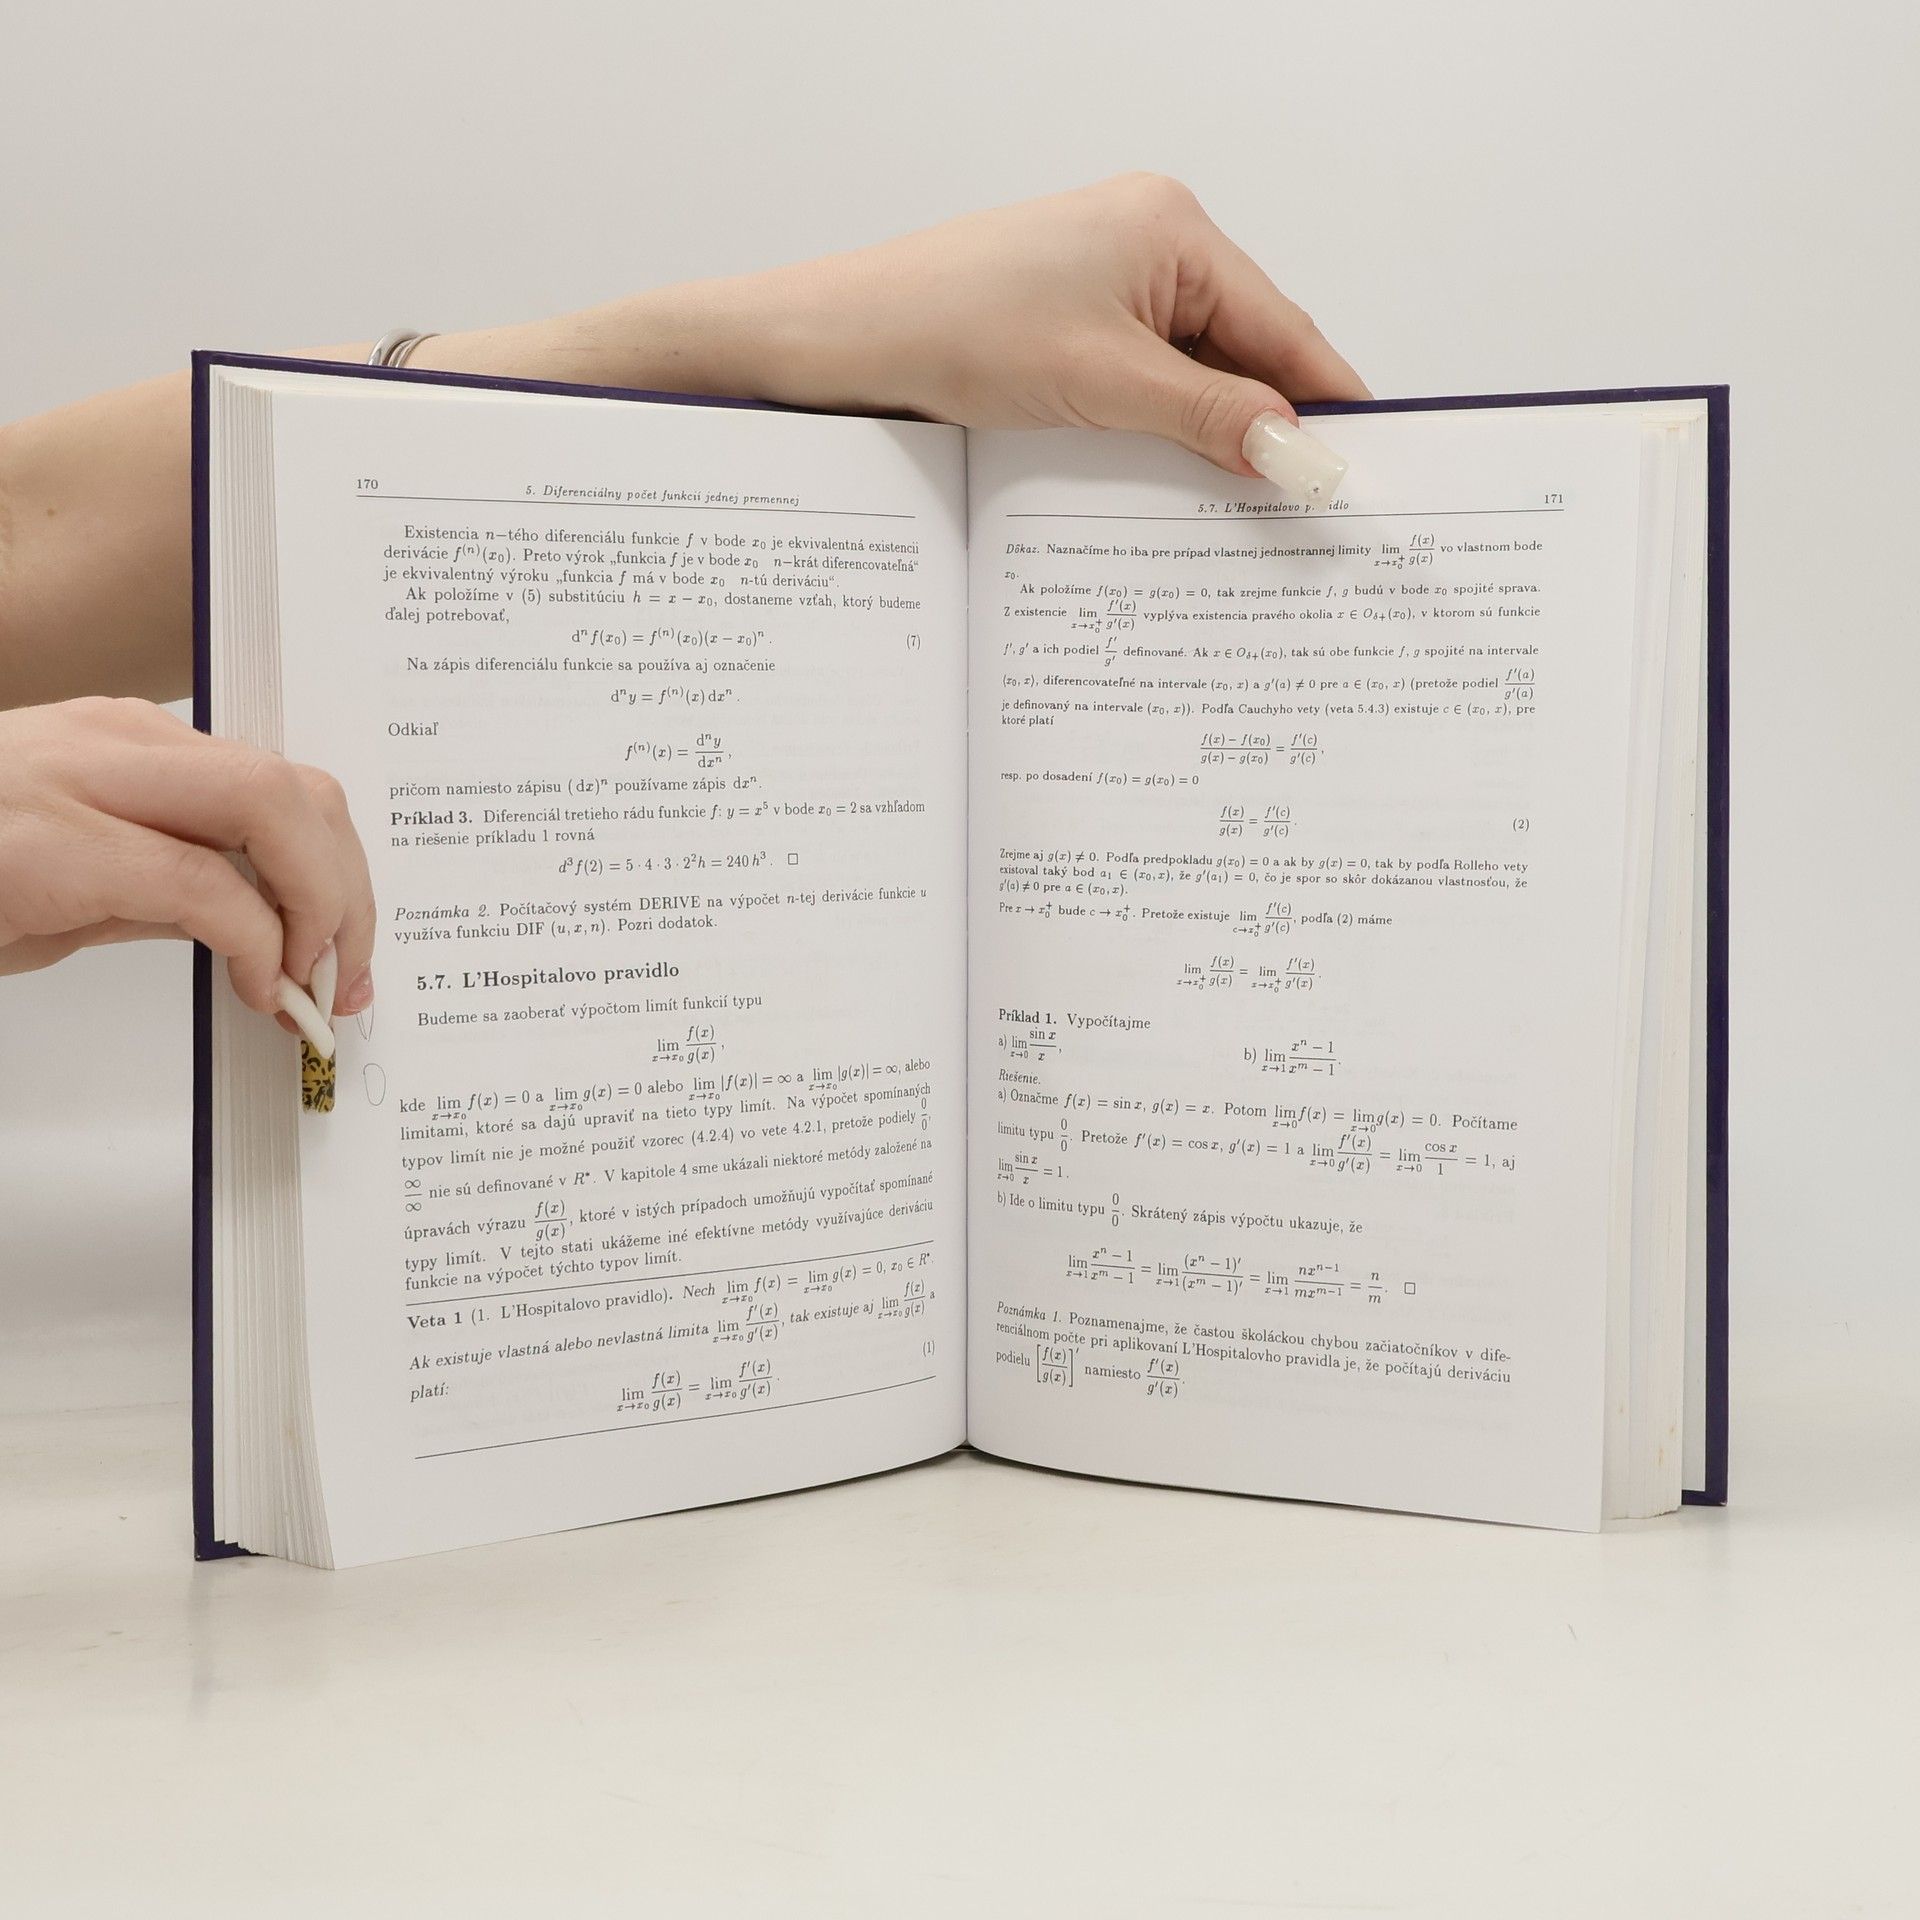 170
5. Diferenciálny počet funkcií jednej premennej
Existencia n−tého diferenciálu funkcie f v bode x₀ je ekvivalentná existencii
derivácie f⁽ⁿ⁾(x₀). Preto výrok „funkcia f je v bode x₀ n−krát diferencovateľná“
je ekvivalentný výroku „funkcia f má v bode x₀ n-tú deriváciu“.
Ak položíme v (5) substitúciu h = x − x₀, dostaneme vzťah, ktorý budeme
ďalej potrebovať,
dⁿf(x₀) = f⁽ⁿ⁾(x₀)(x − x₀)ⁿ. (7)
Na zápis diferenciálu funkcie sa používa aj označenie
dⁿy = f⁽ⁿ⁾(x) dxⁿ.
Odkiaľ
f⁽ⁿ⁾(x) = dⁿy/dxⁿ,
pričom namiesto zápisu (dx)ⁿ používame zápis dxⁿ.
Príklad 3. Diferenciál tretieho rádu funkcie f: y = x⁵ v bode x₀ = 2 sa vzhľadom
na riešenie príkladu 1 rovná
d³f(2) = 5 · 4 · 3 · 2²h = 240 h³. □
Poznámka 2. Počítačový systém DERIVE na výpočet n-tej derivácie funkcie u
využíva funkciu DIF (u, x, n). Pozri dodatok.
5.7. L'Hospitalovo pravidlo
Budeme sa zaoberať výpočtom limít funkcií typu
lim x→x₀ f(x)/g(x),
kde lim x→x₀ f(x) = 0 a lim x→x₀ g(x) = 0 alebo lim x→x₀ |f(x)| = ∞ a lim x→x₀ |g(x)| = ∞, alebo
limitami, ktoré sa dajú upraviť na tieto typy limít. Na výpočet spomínaných
typov limít nie je možné použiť vzorec (4.2.4) vo vete 4.2.1, pretože podiely 0/0,
∞/∞ nie sú definované v R*. V kapitole 4 sme ukázali niektoré metódy založené na
úpravách výrazu f(x)/g(x), ktoré v istých prípadoch umožňujú vypočítať spomínané
typy limít. V tejto stati ukážeme iné efektívne metódy využívajúce deriváciu
funkcie na výpočet týchto typov limít.
Veta 1 (1. L'Hospitalovo pravidlo). Nech lim x→x₀ f(x) = lim x→x₀ g(x) = 0, x₀ ∈ R*.
Ak existuje vlastná alebo nevlastná limita lim x→x₀ f'(x)/g'(x), tak existuje aj lim x→x₀ f(x)/g(x) a
platí:
lim x→x₀ f(x)/g(x) = lim x→x₀ f'(x)/g'(x). (1)
171
5.7. L'Hospitalovo p idlo
Dôkaz. Naznačíme ho iba pre prípad vlastnej jednostrannej limity lim x→x₀⁺ f(x)/g(x) vo vlastnom bode
x₀.
Ak položíme f(x₀) = g(x₀) = 0, tak zrejme funkcie f, g budú v bode x₀ spojité sprava.
Z existencie lim x→x₀⁺ f'(x)/g'(x) vyplýva existencia pravého okolia x ∈ O_δ+(x₀), v ktorom sú funkcie
f', g' a ich podiel f'/g' definované. Ak x ∈ O_δ+(x₀), tak sú obe funkcie f, g spojité na intervale
⟨x₀, x⟩, diferencovateľné na intervale (x₀, x) a g'(a) ≠ 0 pre a ∈ (x₀, x) (pretože podiel f'(a)/g'(a)
je definovaný na intervale (x₀, x)). Podľa Cauchyho vety (veta 5.4.3) existuje c ∈ (x₀, x), pre
ktoré platí
(f(x) − f(x₀))/(g(x) − g(x₀)) = f'(c)/g'(c),
resp. po dosadení f(x₀) = g(x₀) = 0
f(x)/g(x) = f'(c)/g'(c). (2)
Zrejme aj g(x) ≠ 0. Podľa predpokladu g(x₀) = 0 a ak by g(x) = 0, tak by podľa Rolleho vety
existoval taký bod a₁ ∈ (x₀, x), že g'(a₁) = 0, čo je spor so skôr dokázanou vlastnosťou, že
g'(a) ≠ 0 pre a ∈ (x₀, x).
Pre x → x₀⁺ bude c → x₀⁺. Pretože existuje lim c→x₀⁺ f'(c)/g'(c), podľa (2) máme
lim x→x₀⁺ f(x)/g(x) = lim x→x₀⁺ f'(x)/g'(x).
Príklad 1. Vypočítajme
a) lim x→0 sin x/x, b) lim x→1 (xⁿ − 1)/(xᵐ − 1).
Riešenie.
a) Označme f(x) = sin x, g(x) = x. Potom lim x→0 f(x) = lim x→0 g(x) = 0. Počítame
limitu typu 0/0. Pretože f'(x) = cos x, g'(x) = 1 a lim x→0 f'(x)/g'(x) = lim x→0 cos x/1 = 1, aj
lim x→0 sin x/x = 1.
b) Ide o limitu typu 0/0. Skrátený zápis výpočtu ukazuje, že
lim x→1 (xⁿ − 1)/(xᵐ − 1) = lim x→1 (xⁿ − 1)'/(xᵐ − 1)' = lim x→1 nxⁿ⁻¹/mxᵐ⁻¹ = n/m. □
Poznámka 1. Poznamenajme, že častou školáckou chybou začiatočníkov v dife-
renciálnom počte pri aplikovaní L'Hospitalovho pravidla je, že počítajú deriváciu
podielu [f(x)/g(x)]' namiesto f'(x)/g'(x).